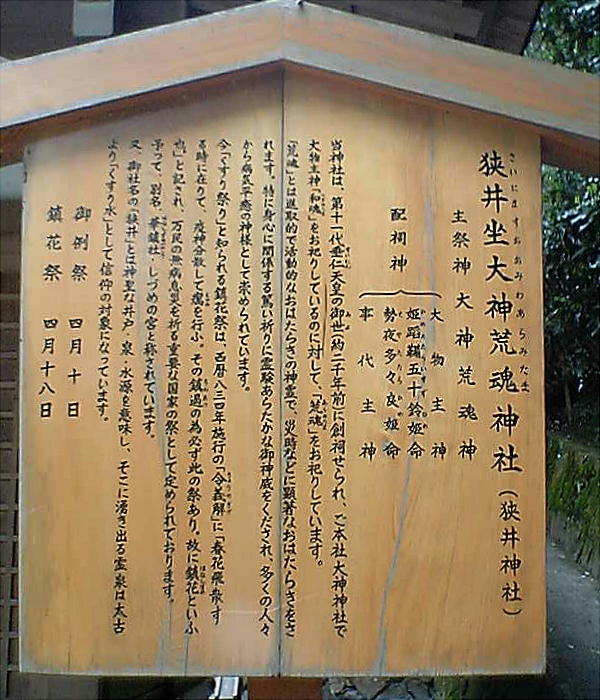 狭井坐大神荒魂神社(狭井神社)
主祭神 大神荒魂神
配祠神
大物主神
姫蹈鞴五十鈴姫命
勢夜多々良姫命
事代主神
当神社は、第十一代垂仁天皇の御世(約二千年前)に創祠せられ、ご本社大神神社で
大物主神「和魂」をお祀りしているのに対して、「荒魂」をお祀りしています。
「荒魂」とは進取的で活動的なおはたらきの神霊で、災時などに顕著なおはたらきをさ
れます。特に心身に関係する篤い祈りに霊験あらたかな御神威をくだされ、多くの人々
から病気平癒の神様として崇められています。
今「くすり祭り」と知られる鎮花祭は、西暦八三四年施行の「令義解」に「春花飛散す
る時に在りて、疫神分散して癘を行ふ。その鎮遏の為必ず此の祭あり。故に鎮花といふ
也」と記され、万民の無病息災を祈る重要な国家の祭として定められております。
予って、別名、華鎮社、しづめの宮と称されています。
又、御社名の「狭井」とは神聖な井戸・泉・水源を意味し、そこに湧き出る霊泉は太古
より「くすり水」として信仰の対象になっています。
御例祭 四月十日
鎮花祭 四月十八日